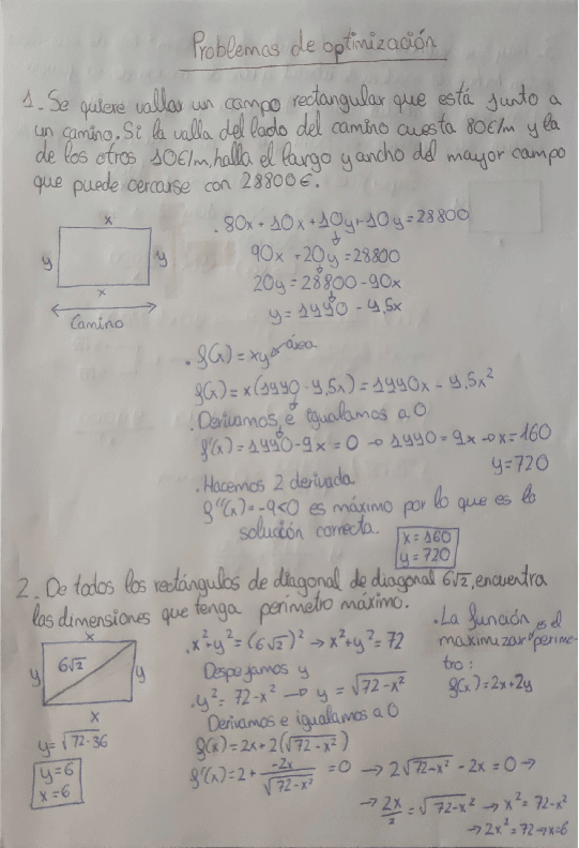 Problemas de optimización
1. Se quiere vallar un campo rectangular que está junto a
un camino. Si la valla del lado del camino cuesta 80€/m y la
de los otros 10€/m, halla el largo y ancho del mayor campo
que puede cercarse con 28800€.
x
y
y
x
Camino
. 80x + 10x + 10y + 10y = 28800
90x + 20y = 28800
20y = 28800 - 90x
y = 1440 - 4,5x
. f(x) = xy → área
f(x) = x(1440 - 4,5x) = 1440x - 4,5x²
. Derivamos e igualamos a 0
f'(x) = 1440 - 9x = 0 → 1440 = 9x → x = 160
y = 720
. Hacemos 2 derivada
f''(x) = -9 < 0 es máximo por lo que es la
solución correcta.
x = 160
y = 720
2. De todos los rectángulos de diagonal de diagonal 6√2, encuentra
las dimensiones que tenga perímetro máximo.
x
y
6√2
y
x
y = √72-36
y = 6
x = 6
. x² + y² = (6√2)² → x² + y² = 72
Despejamos y
. y² = 72 - x² → y = √72 - x²
Derivamos e igualamos a 0
f(x) = 2x + 2(√72 - x²)
f'(x) = 2 + -2x/√72 - x² = 0 → 2√72 - x² - 2x = 0 →
→ 2x/2 = √72 - x² → x² = 72 - x²
→ 2x² = 72 → x = 6
. La función es el
maximizar perime-
tro:
f(x) = 2x + 2y